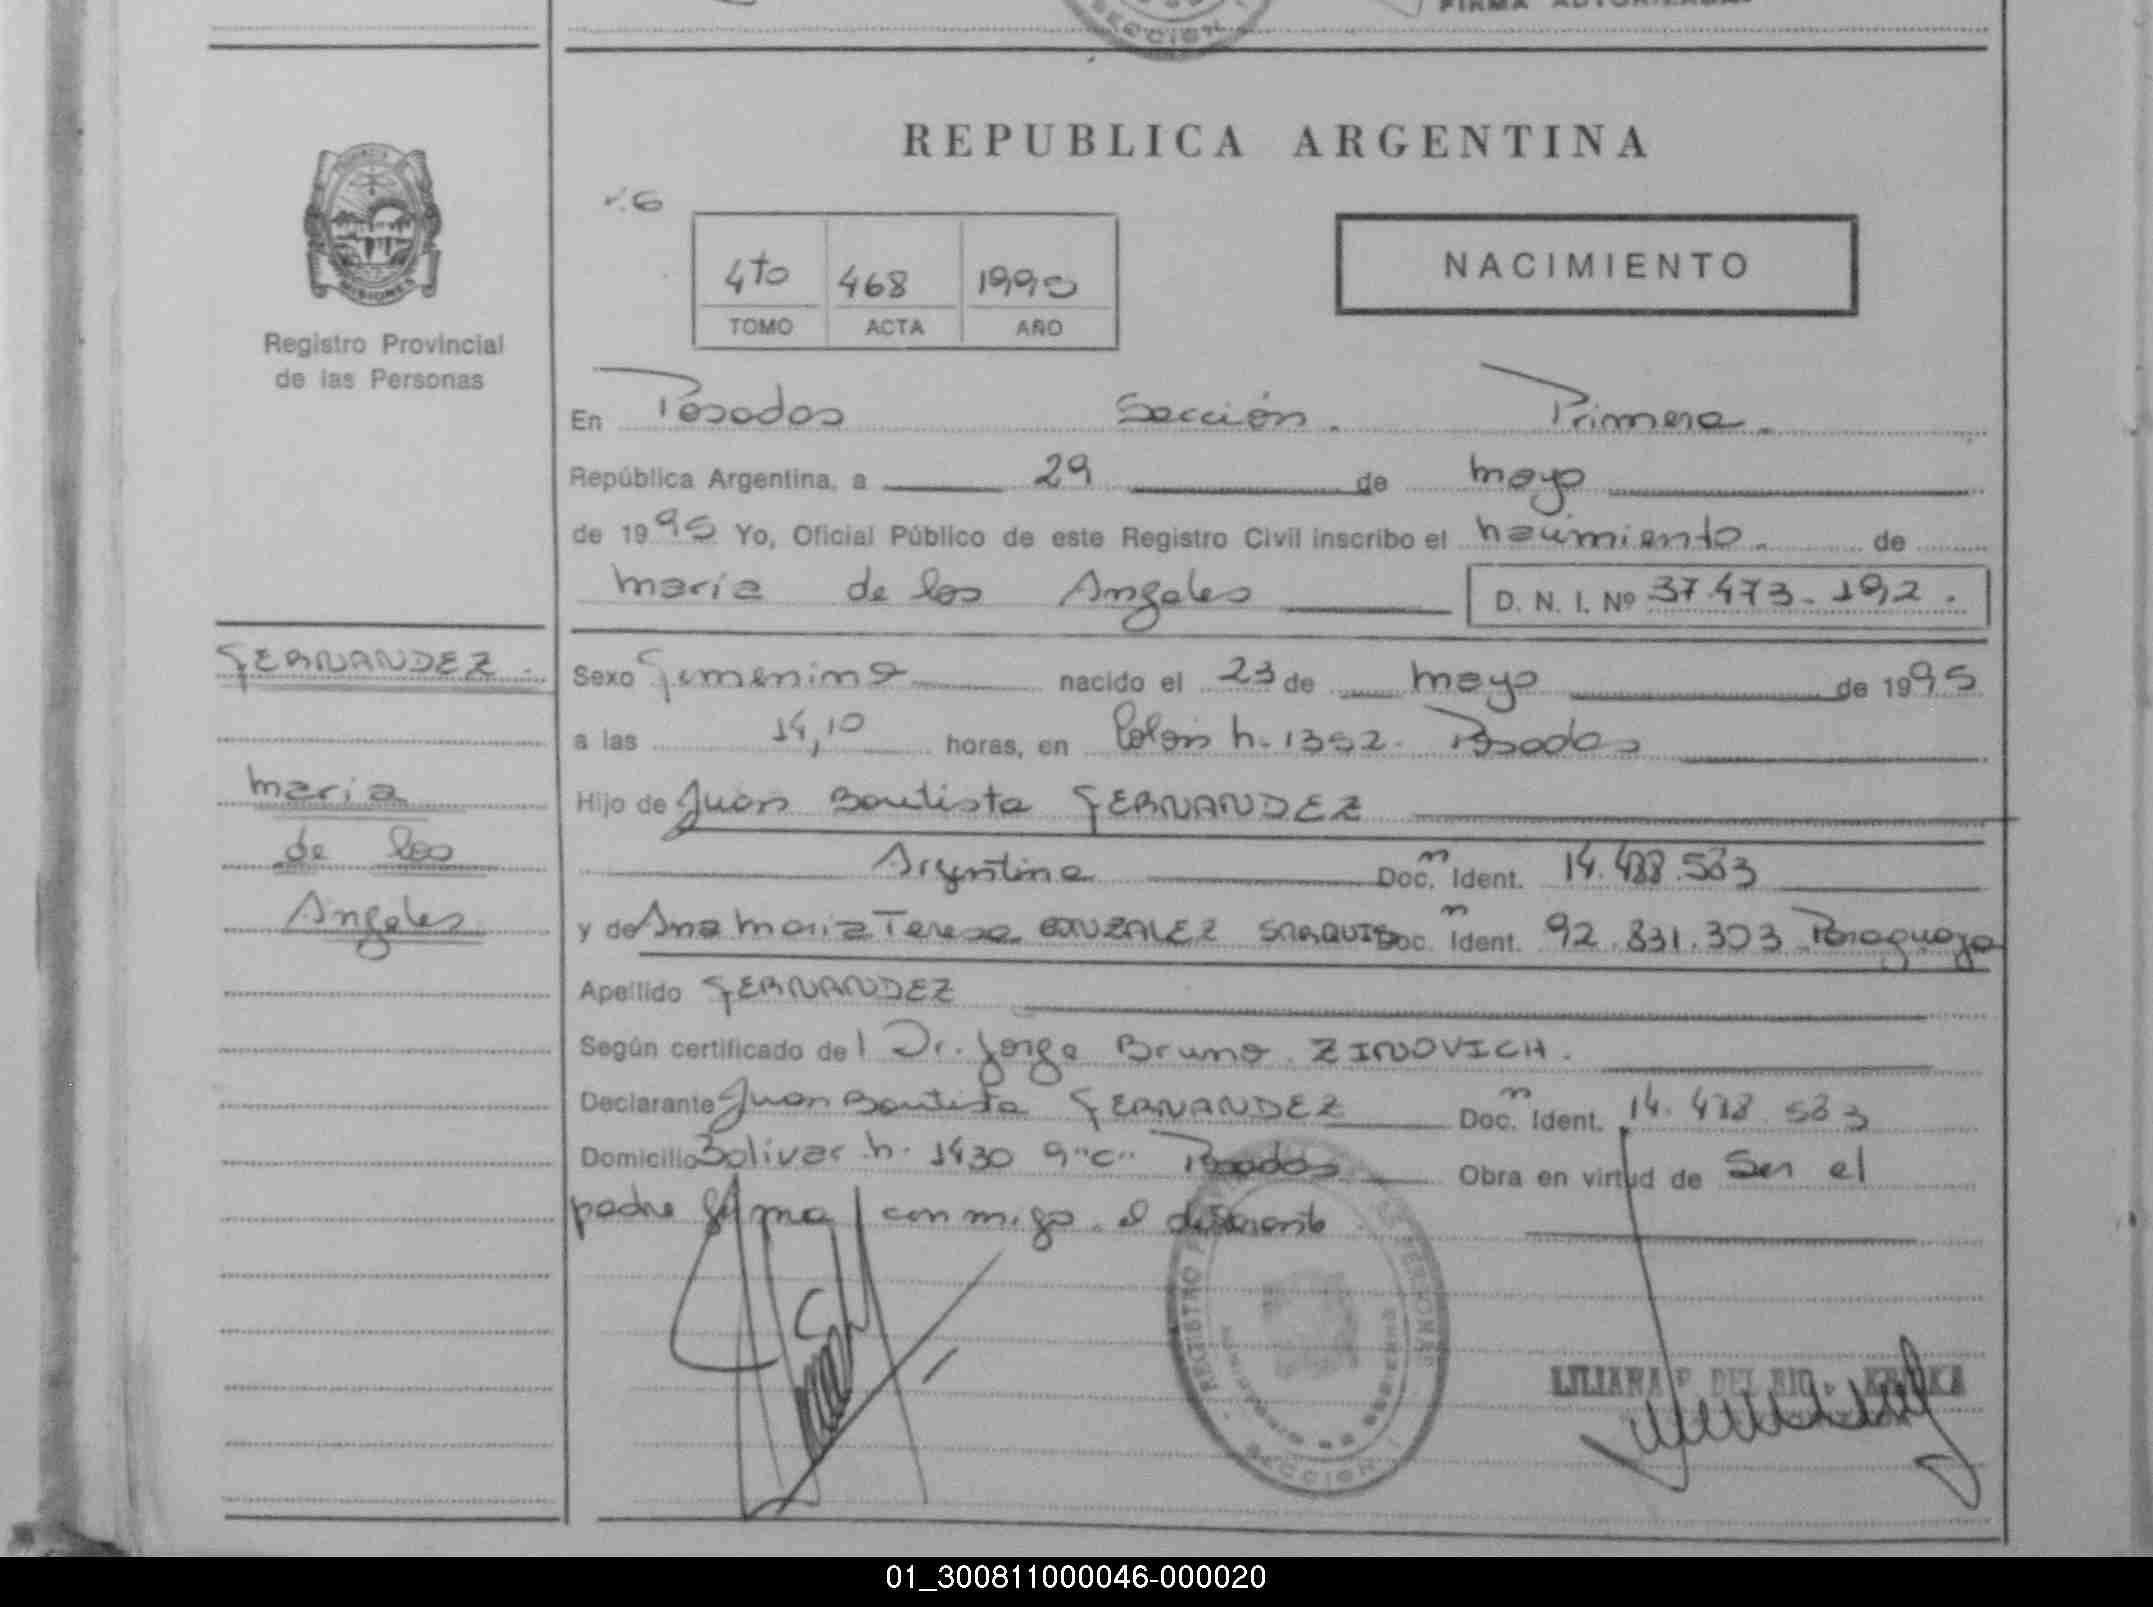 FIRMA AUTORIZADA
SECCION
REPUBLICA ARGENTINA
MISIONES
Registro Provincial
de las Personas
4to 468 1995
TOMO ACTA AÑO
NACIMIENTO
En Posadas Sección. Primera.
República Argentina, a 29 de mayo
de 1995 Yo, Oficial Público de este Registro Civil inscribo el nacimiento. de
maria de los Angeles D. N. I. Nº 37.473.192.
FERNANDEZ.
maria
de los
Angeles
Sexo Femenino nacido el 23 de mayo de 1995
a las 14,10 horas, en Colon n. 1352. Posadas
Hijo de Juan Bautista FERNANDEZ
Argentina Doc. n Ident. 14.488.583
y de Ana Maria Teresa GONZALEZ SARQUIS Doc. n Ident. 92.831.303 Paraguaya
Apellido FERNANDEZ
Según certificado del Dr. Jorge Bruno ZINOVICH.
Declarante Juan Bautista FERNANDEZ Doc. n Ident. 14.488.583
Domicilio Bolivar n. 1430 9"C" Posadas Obra en virtud de Ser el
padre firma conmigo. el declarante
REGISTRO PERSONAS
SECCION
LILIANA P. DEL RIO
01_300811000046-000020